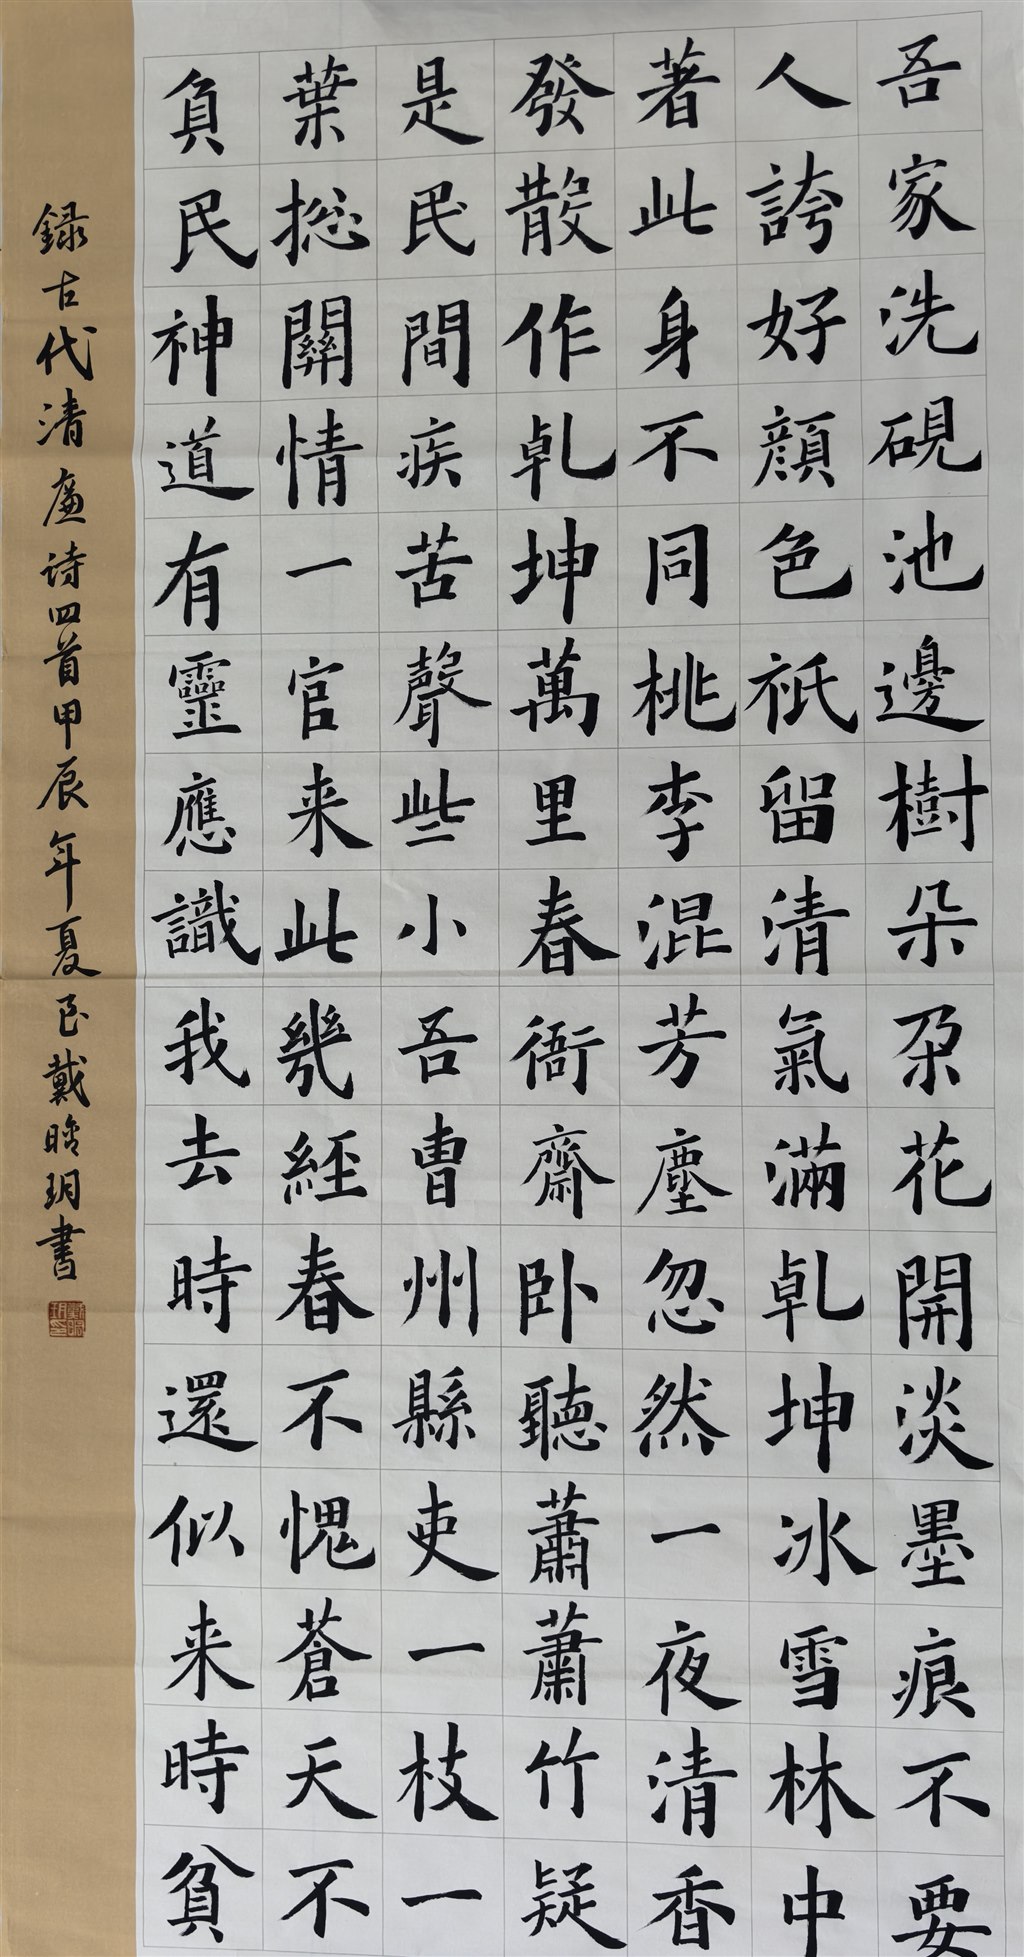 吾家洗硯池邊樹朵朶花開淡墨痕不要
人誇好顔色祇留清氣滿乹坤冰雪林中
著此身不同桃李混芳塵忽然一夜清香
發散作乹坤萬里春衙齋卧聽蕭蕭竹疑
是民間疾苦聲些小吾曹州縣吏一枝一
葉捴關情一官来此幾經春不愧蒼天不
負民神道有靈應識我去時還似来時貧
録古代清廉诗四首甲辰年夏戴晗玥書